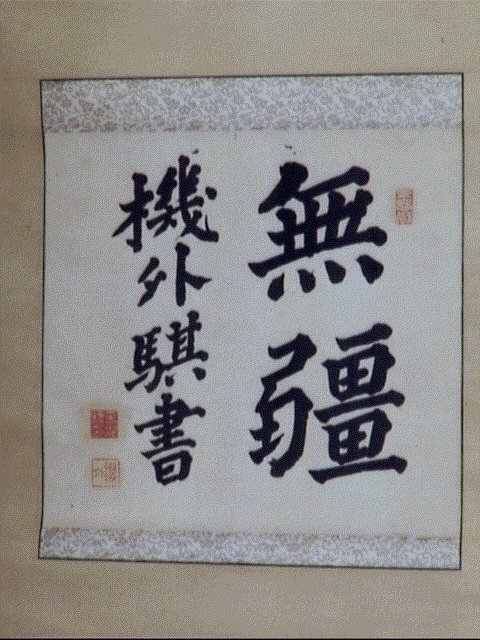 無疆
機外騏書